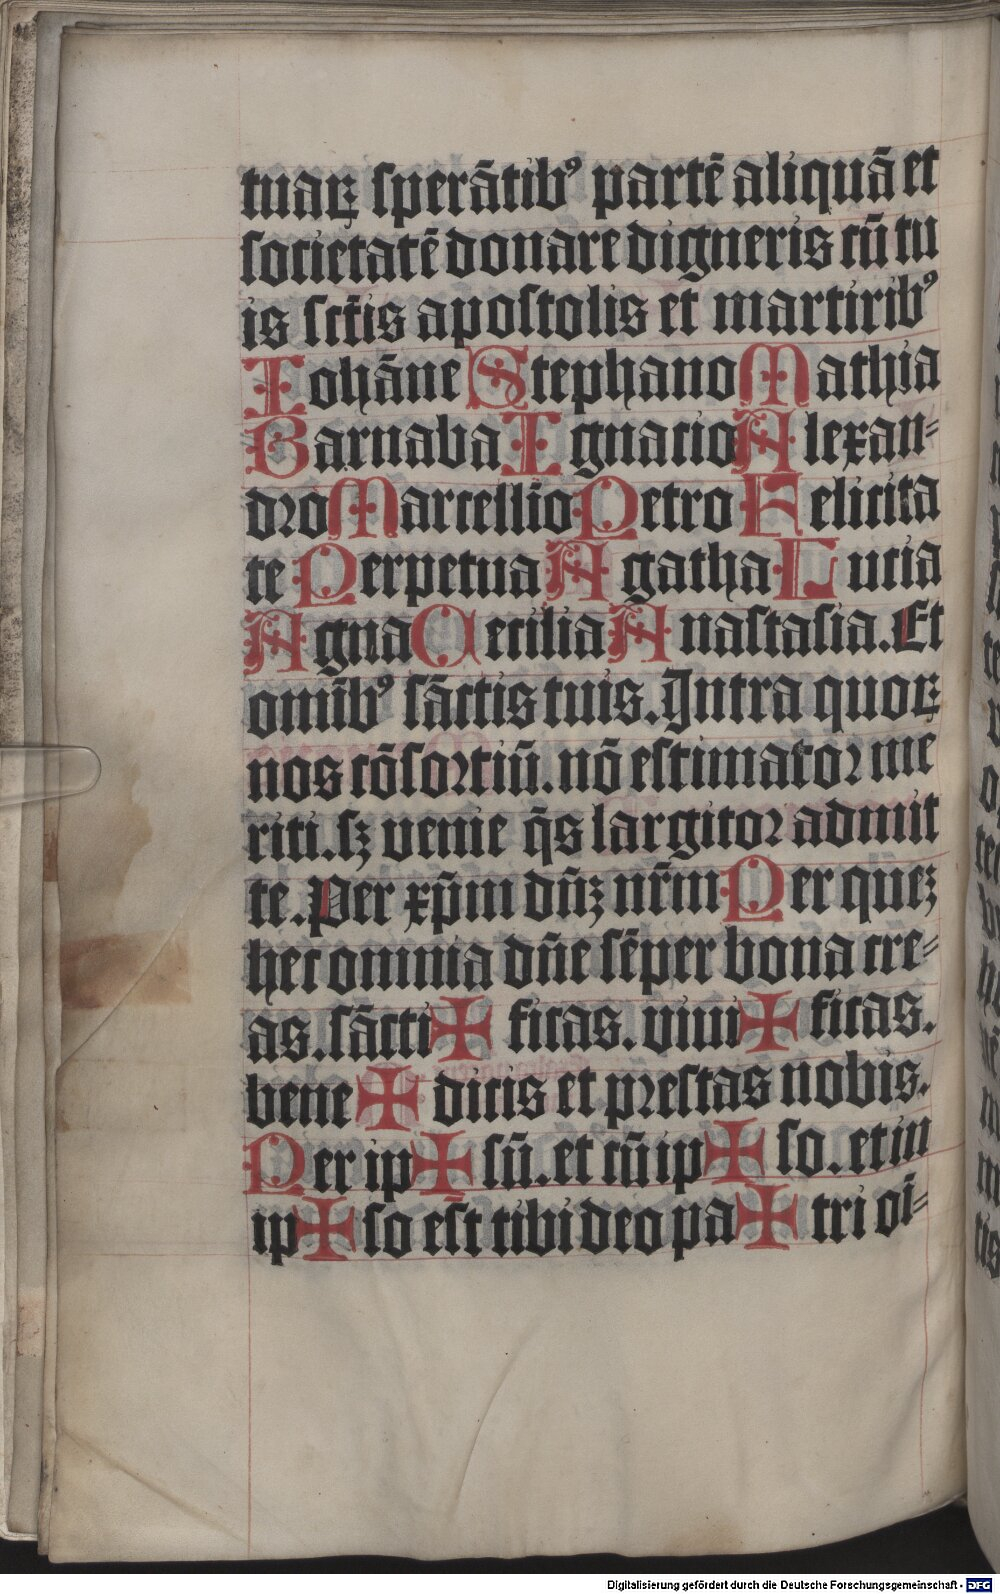 tuaꝝ sperātib⁹ partē aliquā et
societatē donare digneris cū tu
is sct̄is apostolis et martirib⁹
Iohāne Stephano Mathia
Barnaba Ignacio Alexan-
dro Marcellīo Petro Felicita
te Perpetua Agatha Lucia
Agna Cecilia Anastasia. Et
omīb⁹ sāctis tuis. Intra quoꝝ
nos cōsortiū. nō estimator me
riti. sꝫ venie q̄s largitor admit
te. Per xp̄m dn̄ꝫ nr̄m Per queꝫ
hec omnia dn̄e sēper bona cre-
as. sācti✠ficas. viui✠ficas.
bene✠dicis et prestas nobis.
Per ip✠sū. et cū ip✠so. et in
ip✠so est̄ tibi deo pa✠tri oī-
Digitalisierung gefördert durch die Deutsche Forschungsgemeinschaft - DFG